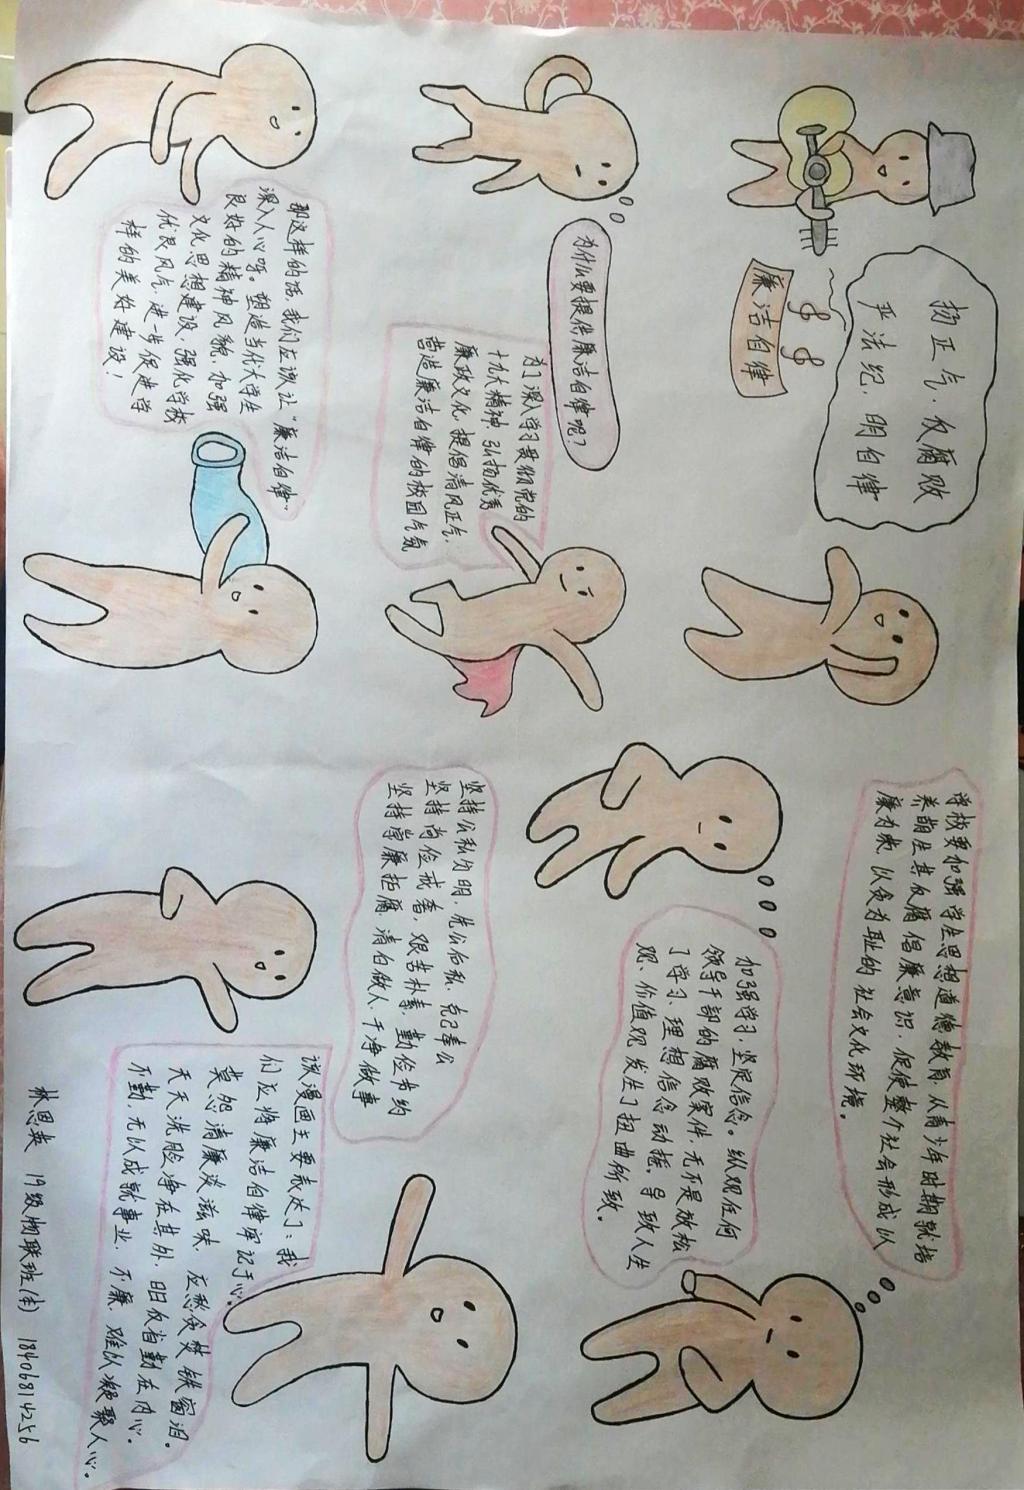 扬正气,反腐败
严法纪,明自律
廉洁自律
为什么要提倡廉洁自律呢?
为了深入学习贯彻党的
十九大精神,弘扬优秀
廉政文化,提倡清风正气,
营造廉洁自律的校园气氛
那这样的话,我们应该让“廉洁自律”
深入人心呀。塑造当代大学生
良好的精神风貌,加强
文化思想建设,强化学校
优良风气,进一步促进学
样的美好建设!
学校要加强学生思想道德教育,从青少年时期就培
养萌生其反腐倡廉意识,促使整个社会形成以
廉为荣,以贪为耻的社会文化环境。
加强学习,坚定信念。纵观任何
领导干部的腐败案件,无不是放松
了学习,理想信念动摇,导致人生
观、价值观发生了扭曲所致。
坚持公私分明,先公后私,克己奉公
坚持尚俭戒奢,艰苦朴素,勤俭节约
坚持崇廉拒腐,清白做人,干净做事
该漫画主要表达了:我
们应将廉洁自律牢记于心。
莫怨清廉淡滋味,应愁贪焚铁窗泪。
天天洗脸净在其外,日日反省勤在内心。
不勤,无以成就事业,不廉,难以凝聚人心。
林思英 19级物联班(本) 18406814256